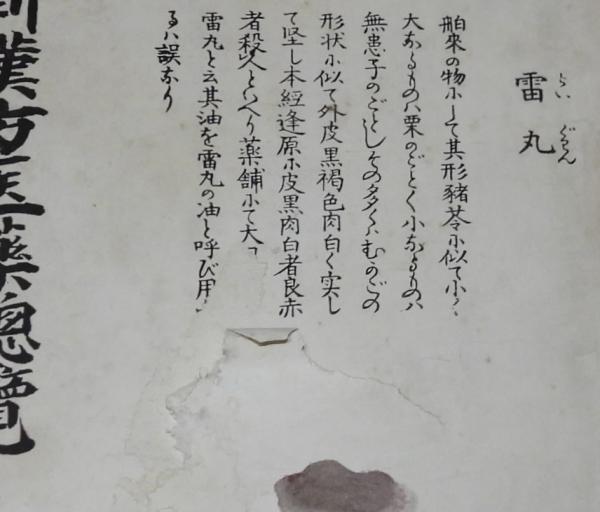 雷丸
らいぐわん
舶来の物にして其形豬苓に似て小く
大なるものハ栗のごとく小なるものハ
無患子のごとしその多くハむかごの
形状に似て外皮黒褐色肉白く実し
て堅し本経逢原に皮黒肉白者良赤
者殺人といへり薬舗にて大
雷丸と云其油を雷丸の油と呼び用
るハ誤なり
漢方医薬總覽